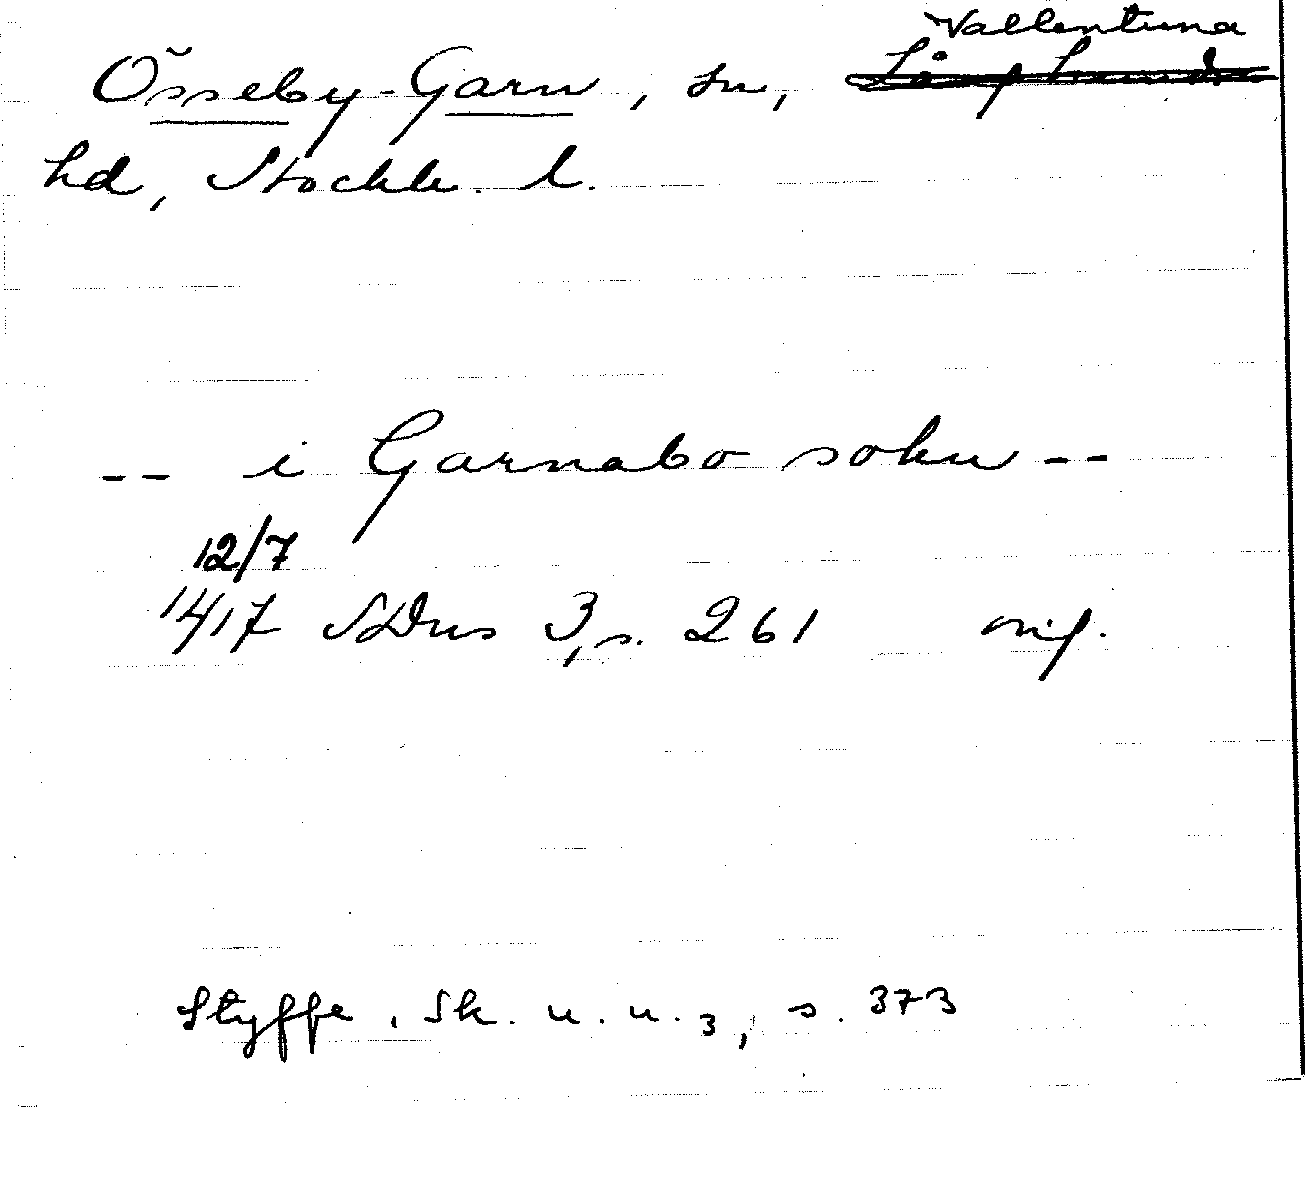 Vallentuna
Össeby-Garn, sn, Långhundra
hd, Stockh. l.
-- i Garnabo sokn --
12/7
1417 SDns 3, s. 261 orig.
Styffe, Sk. u. u. 3, s. 373